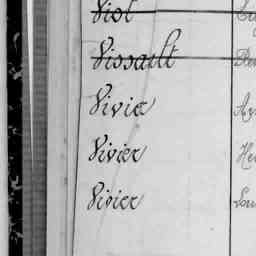 Viol
Vissault
Vivier
Vivier
Vivier